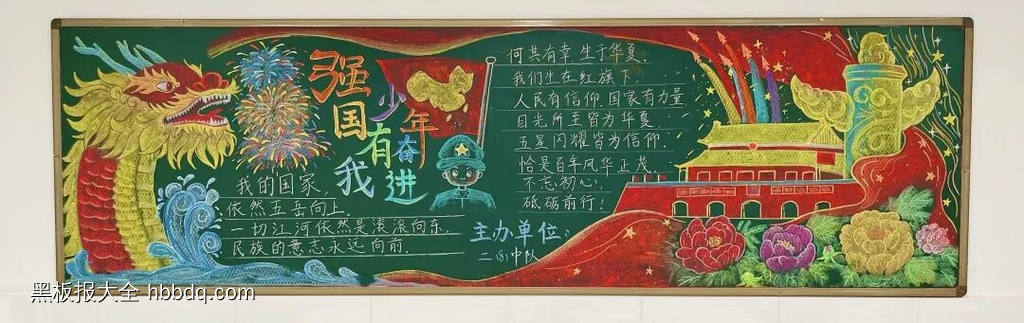 强国有我
少年奋进
我的国家,
依然五岳向上.
一切江河依然是滚滚向东.
民族的意志永远向前.
何其有幸.生于华夏.
我们生在红旗下.
人民有信仰.国家有力量
目光所至皆为华夏.
五星闪耀皆为信仰.
恰是百年风华正茂.
不忘初心.
砥砺前行!
主办单位:
二(8)中队
黑板报大全 hbbdq.com